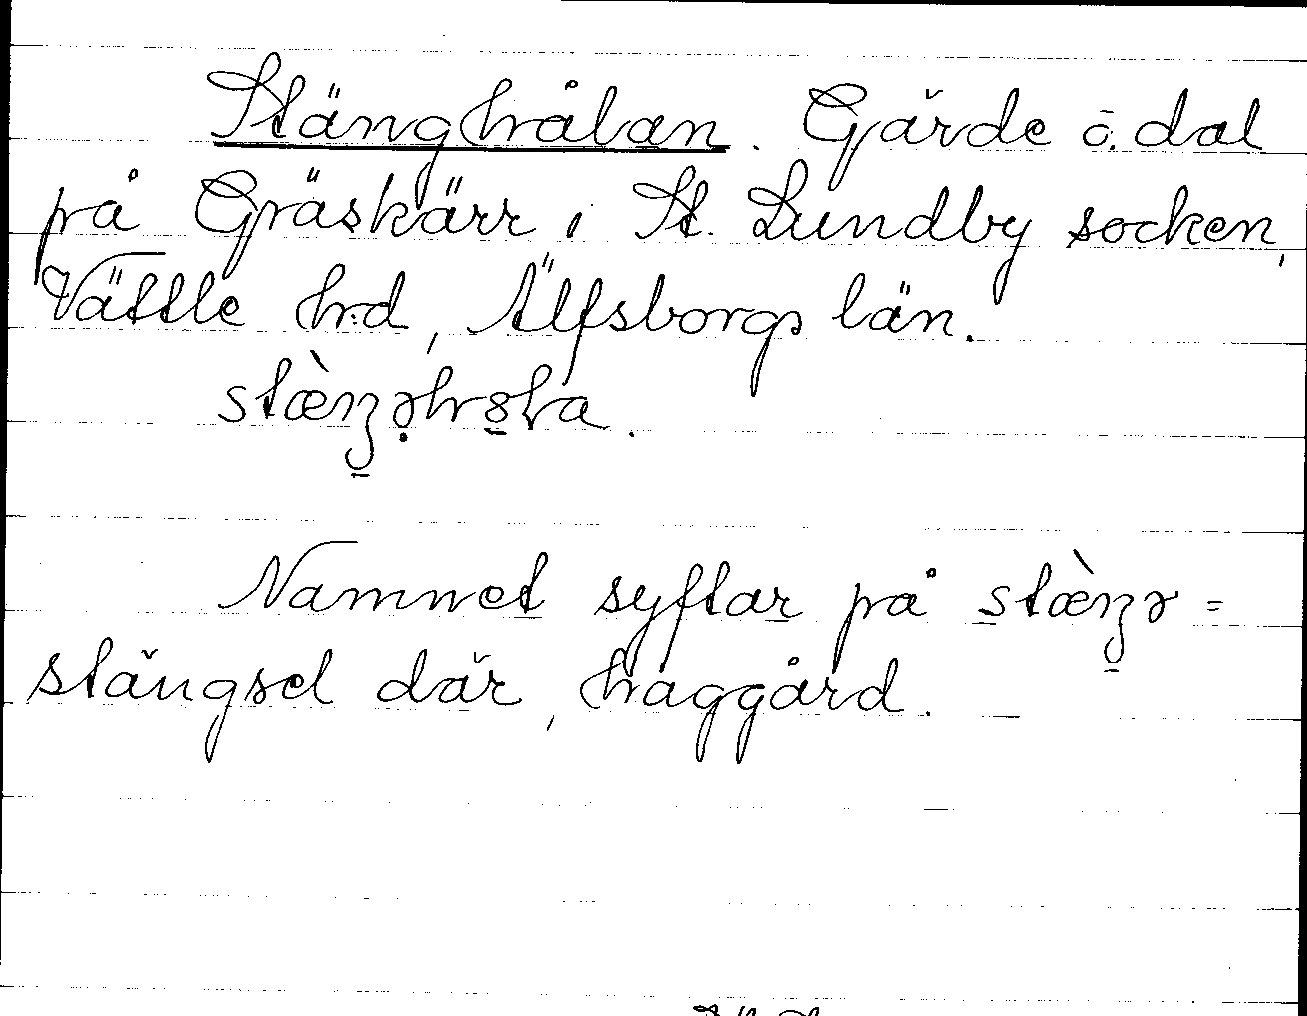 Stänghålan. Gärde o. dal
på Gräskärr i St. Lundby socken,
Vättle hrd, Älfsborgs län.
Namnet syftar på
stängsel där, häggård.